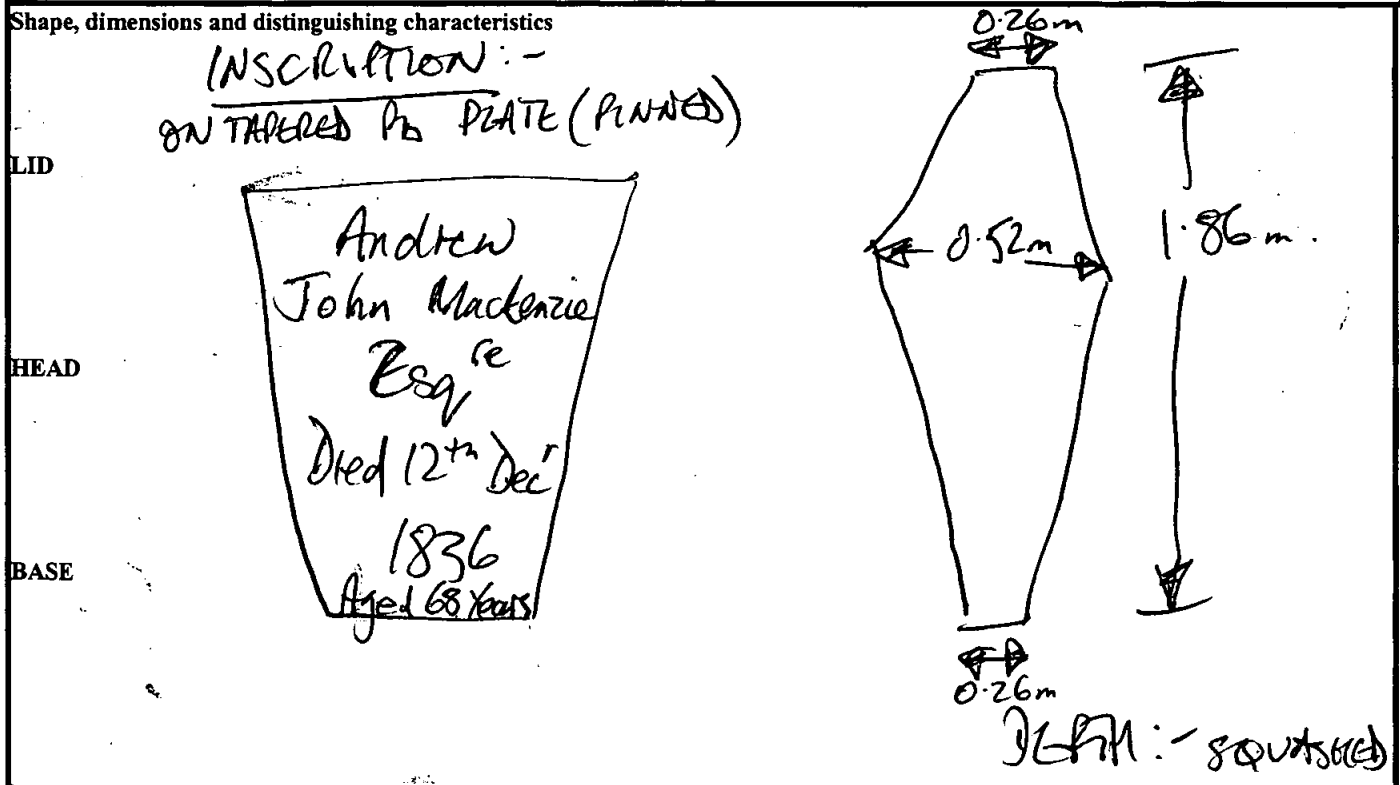 Shape, dimensions and distinguishing characteristics
INSCRIPTION:-
ON TAPERED Pb PLATE (PINNED)
LID
HEAD
BASE
Andrew
John Mackenzie
Esqre
Died 12th Decr
1836
Aged 68 Years
0.26m
0.52m
1.86m.
0.26m
DEPTH:- SQUASHED